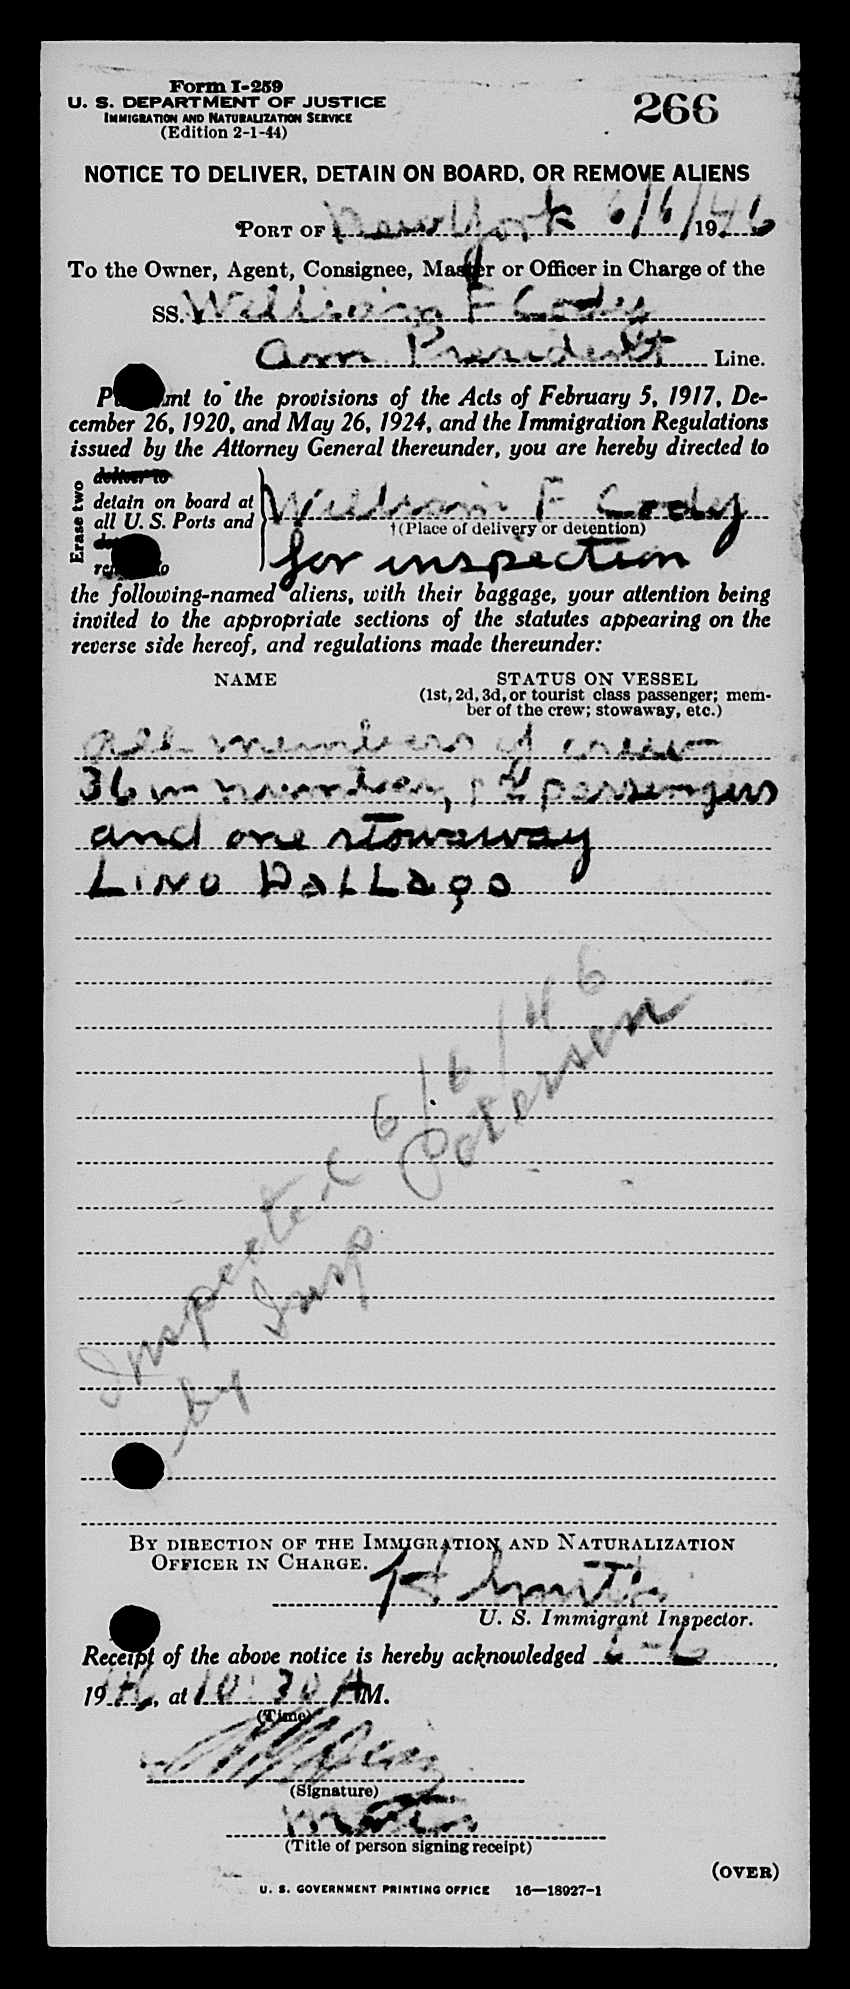 Form I-259
U. S. DEPARTMENT OF JUSTICE
IMMIGRATION AND NATURALIZATION SERVICE
(Edition 2-1-44)
266
NOTICE TO DELIVER, DETAIN ON BOARD, OR REMOVE ALIENS
PORT OF New York 6/6/1946
To the Owner, Agent, Consignee, Master or Officer in Charge of the
SS. William F Cody
Am President Line.
to the provisions of the Acts of February 5, 1917, De-
cember 26, 1920, and May 26, 1924, and the Immigration Regulations
issued by the Attorney General thereunder, you are hereby directed to
Erase two
deliver to
detain on board at
all U. S. Ports and
William F Cody
†(Place of delivery or detention)
for inspection
the following-named aliens, with their baggage, your attention being
invited to the appropriate sections of the statutes appearing on the
reverse side hereof, and regulations made thereunder:
NAME
STATUS ON VESSEL
(1st, 2d, 3d, or tourist class passenger; mem-
ber of the crew; stowaway, etc.)
all members of crew
36 in number, passengers
and one stowaway
LINO DALLAGO
Inspected 6/6/46
by Insp Petersen
BY DIRECTION OF THE IMMIGRATION AND NATURALIZATION
OFFICER IN CHARGE.
U. S. Immigrant Inspector.
Receipt of the above notice is hereby acknowledged 6-6
1946, at 10:30 AM.
(Time)
(Signature)
(Title of person signing receipt)
(OVER)
U. S. GOVERNMENT PRINTING OFFICE 16—18927-1